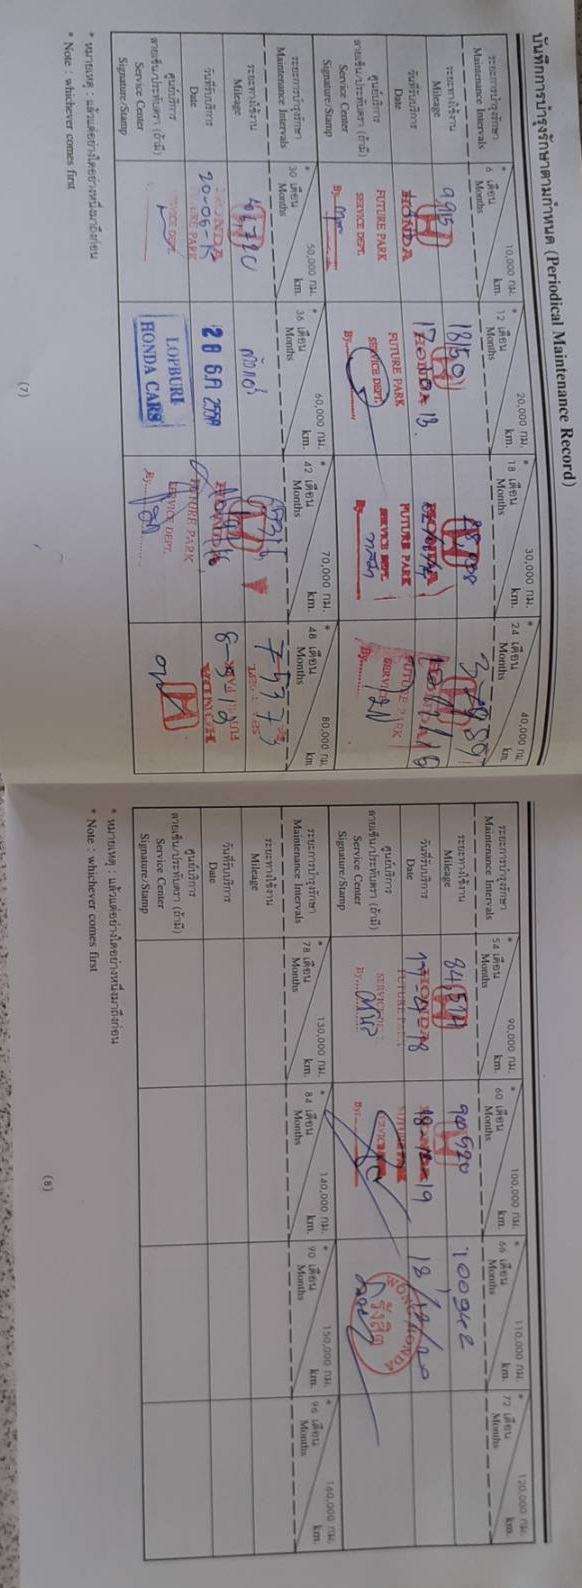 บันทึกการบำรุงรักษาตามกำหนด (Periodical Maintenance Record)
ระยะการบำรุงรักษา
Maintenance Intervals
* 6 เดือน
Months
10,000 กม.
km.
* 12 เดือน
Months
20,000 กม.
km.
* 18 เดือน
Months
30,000 กม.
km.
* 24 เดือน
Months
40,000 กม.
km.
ระยะทางใช้งาน
Mileage
วันที่รับบริการ
Date
HONDA
HONDA
HONDA
ศูนย์บริการ
ลายเซ็น/ประทับตรา (ถ้ามี)
Service Center
Signature/Stamp
FUTURE PARK
SERVICE DEPT.
By
FUTURE PARK
SERVICE DEPT.
By
FUTURE PARK
SERVICE DEPT.
By
FUTURE PARK
SERVICE
By
ระยะการบำรุงรักษา
Maintenance Intervals
* 30 เดือน
Months
50,000 กม.
km.
* 36 เดือน
Months
60,000 กม.
km.
* 42 เดือน
Months
70,000 กม.
km.
* 48 เดือน
Months
80,000 กม.
km.
ระยะทางใช้งาน
Mileage
75373
วันที่รับบริการ
Date
HONDA
20-06-15
28 ธ.ค. 2558
HONDA
HONDA
ศูนย์บริการ
ลายเซ็น/ประทับตรา (ถ้ามี)
Service Center
Signature/Stamp
FUTURE PARK
SERVICE DEPT.
LOPBURI
HONDA CARS
FUTURE PARK
SERVICE DEPT.
By
* หมายเหตุ : แล้วแต่อย่างใดอย่างหนึ่งมาถึงก่อน
* Note : whichever comes first
(7)
ระยะการบำรุงรักษา
Maintenance Intervals
* 54 เดือน
Months
90,000 กม.
km.
* 60 เดือน
Months
100,000 กม.
km.
* 66 เดือน
Months
110,000 กม.
km.
* 72 เดือน
Months
120,000 กม.
km.
ระยะทางใช้งาน
Mileage
94520
100942
วันที่รับบริการ
Date
HONDA
17-4-18
18-12-19
18/12/20
ศูนย์บริการ
ลายเซ็น/ประทับตรา (ถ้ามี)
Service Center
Signature/Stamp
FUTURE PARK
SERVICE
By
FUTURE PARK
SERVICE
By
HONDA
รังสิต
ระยะการบำรุงรักษา
Maintenance Intervals
* 78 เดือน
Months
130,000 กม.
km.
* 84 เดือน
Months
140,000 กม.
km.
* 90 เดือน
Months
150,000 กม.
km.
* 96 เดือน
Months
160,000 กม.
km.
ระยะทางใช้งาน
Mileage
วันที่รับบริการ
Date
ศูนย์บริการ
ลายเซ็น/ประทับตรา (ถ้ามี)
Service Center
Signature/Stamp
* หมายเหตุ : แล้วแต่อย่างใดอย่างหนึ่งมาถึงก่อน
* Note : whichever comes first
(8)